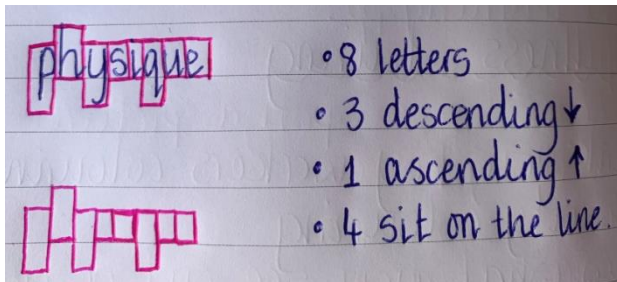 physique
• 8 letters
• 3 descending ↓
• 1 ascending ↑
• 4 sit on the line.